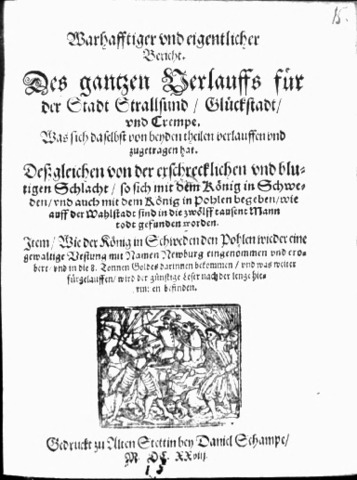 15.
Warhafftiger vnd eigentlicher
Bericht.
Des gantzen Verlauffs für
der Stadt Strallsund / Glückstadt /
vnd Crempe.
Was sich daselbst von beyden theilen verlauffen vnd
zugetragen hat.
Deßgleichen von der erschrecklichen vnd blu-
tigen Schlacht / so sich mit dem König in Schwe-
den / vnd auch mit dem König in Pohlen begeben / wie
auff der Wahlstadt sind in die zwölff tausent Mann
todt gefunden worden.
Item / Wie der König in Schweden den Pohlen wieder eine
gewaltige Vestung mit Namen Newburg eingenommen vnd ero-
bert / vnd in die 8. Tonnen Goldes darinnen bekommen / vnd was weiter
fürgelauffen / wird der günstige Leser nach der lenge hie-
en befinden.
Gedruckt zu Alten Stettin bey Daniel Schampe /
M DC XXviij.